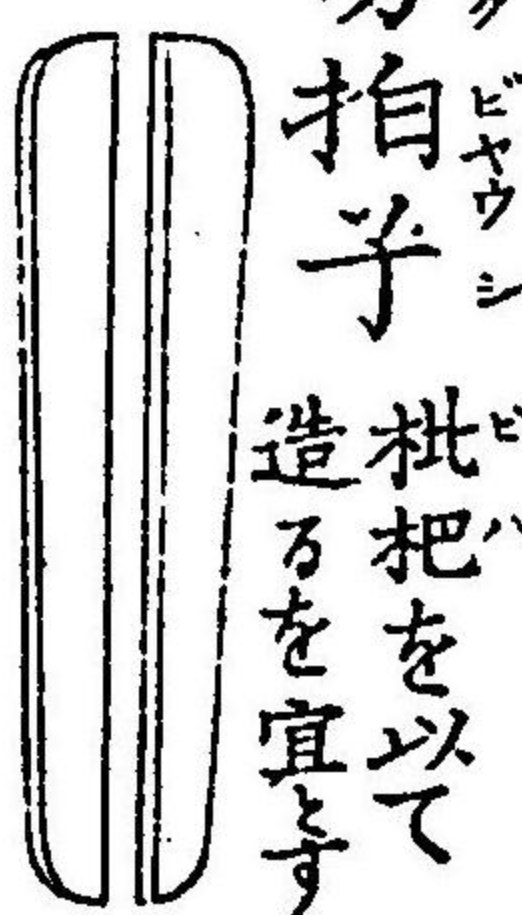 拍子
ビヤウシ
枇杷を以て
ビハ
造るを宜とす